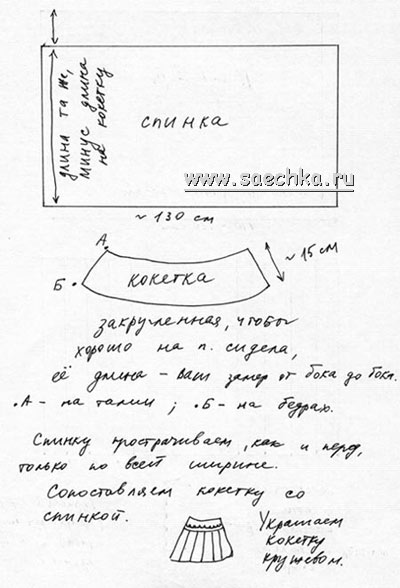 длина та же,
минус длина
на кокетку
спинка
www.saechka.ru
~ 130 см
А
~ 15 см
Б
кокетка
закругленная, чтобы
хорошо на п. сидела,
её длина – Ваш замер от бока до бока.
•А – на талии ; •Б – на бедрах.
Спинку прострачиваем, как и перед,
только по всей ширине.
Сопоставляем кокетку со
спинкой.
Украшаем
кокетку
кружевом.